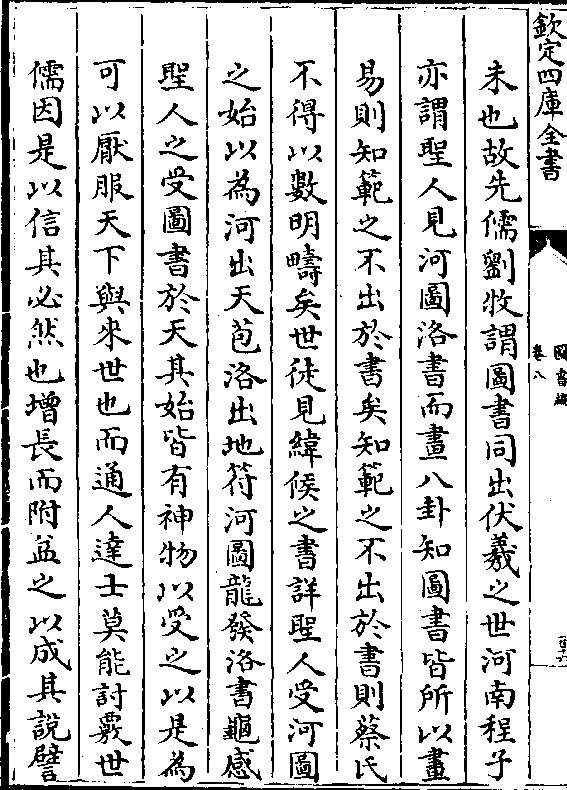 欽定四庫全書
圖書編
卷八
未也故先儒劉牧謂圖書同出伏羲之世河南程子
亦謂聖人見河圖洛書而畫八卦知圖書皆所以畫
易則知範之不出於書矣知範之不出於書則蔡氏
不得以數明疇矣世徒見緯候之書詳聖人受河圖
之始以為河出天苞洛出地符河圖龍發洛書龜感
聖人之受圖書於天其始皆有神物以受之以是為
可以厭服天下與來世也而通人達士莫能討覈世
儒因是以信其必然也增長而附益之以成其說譬